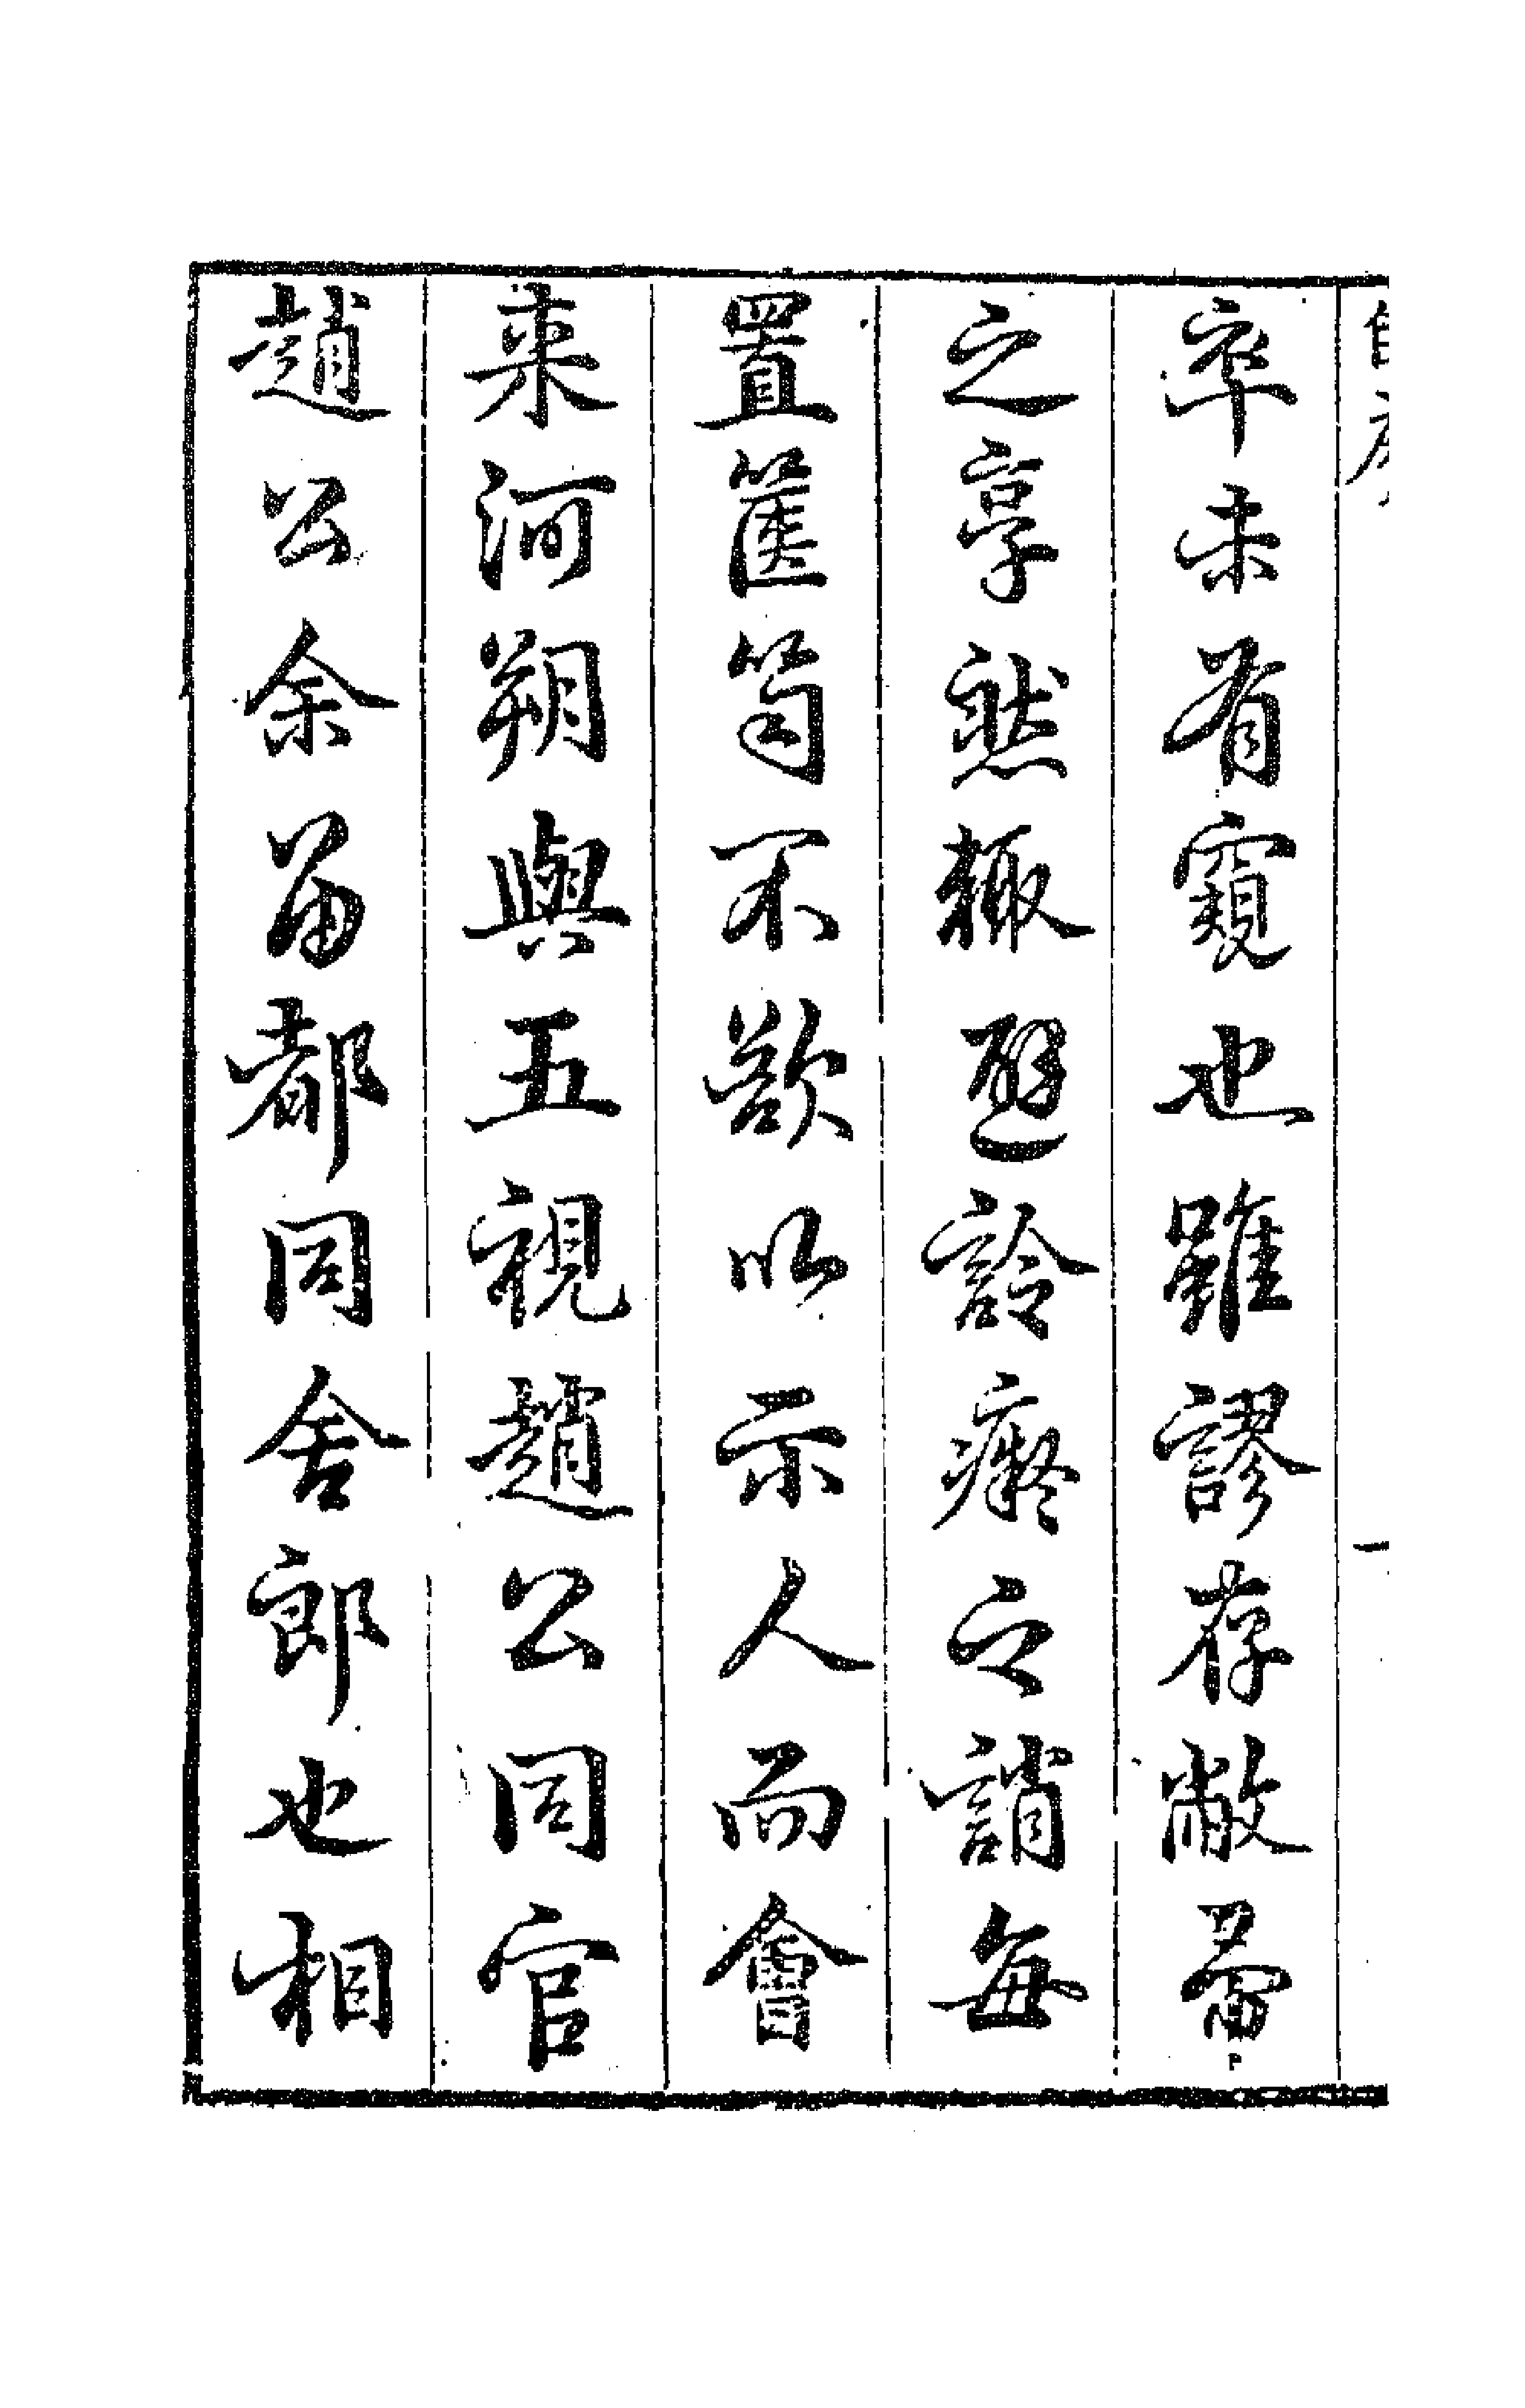 自序
卒未有窺也雖謬存敝帚
之享然輒避詅癡之誚每
置篋笥不欲以示人而會
来河朔與五視趙公同官
趙公余留都同舍郎也相
一